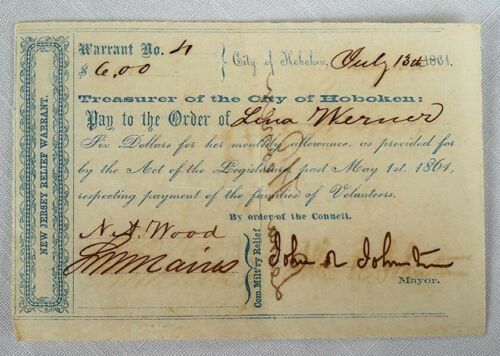 NEW JERSEY RELIEF WARRANT.
Warrant No. 4
$ 6.00
City of Hoboken, July 13th 1861.
Treasurer of the City of Hoboken:
Pay to the Order of Lina Werner
Six Dollars for her monthly allowance, as provided for
by the Act of the Legislature, past May 1st. 1861,
respecting payment of the families of Volunteers.
By order of the Council.
N. A. Wood
Com. Milt'ry Relief
John R Johnston
Mayor.